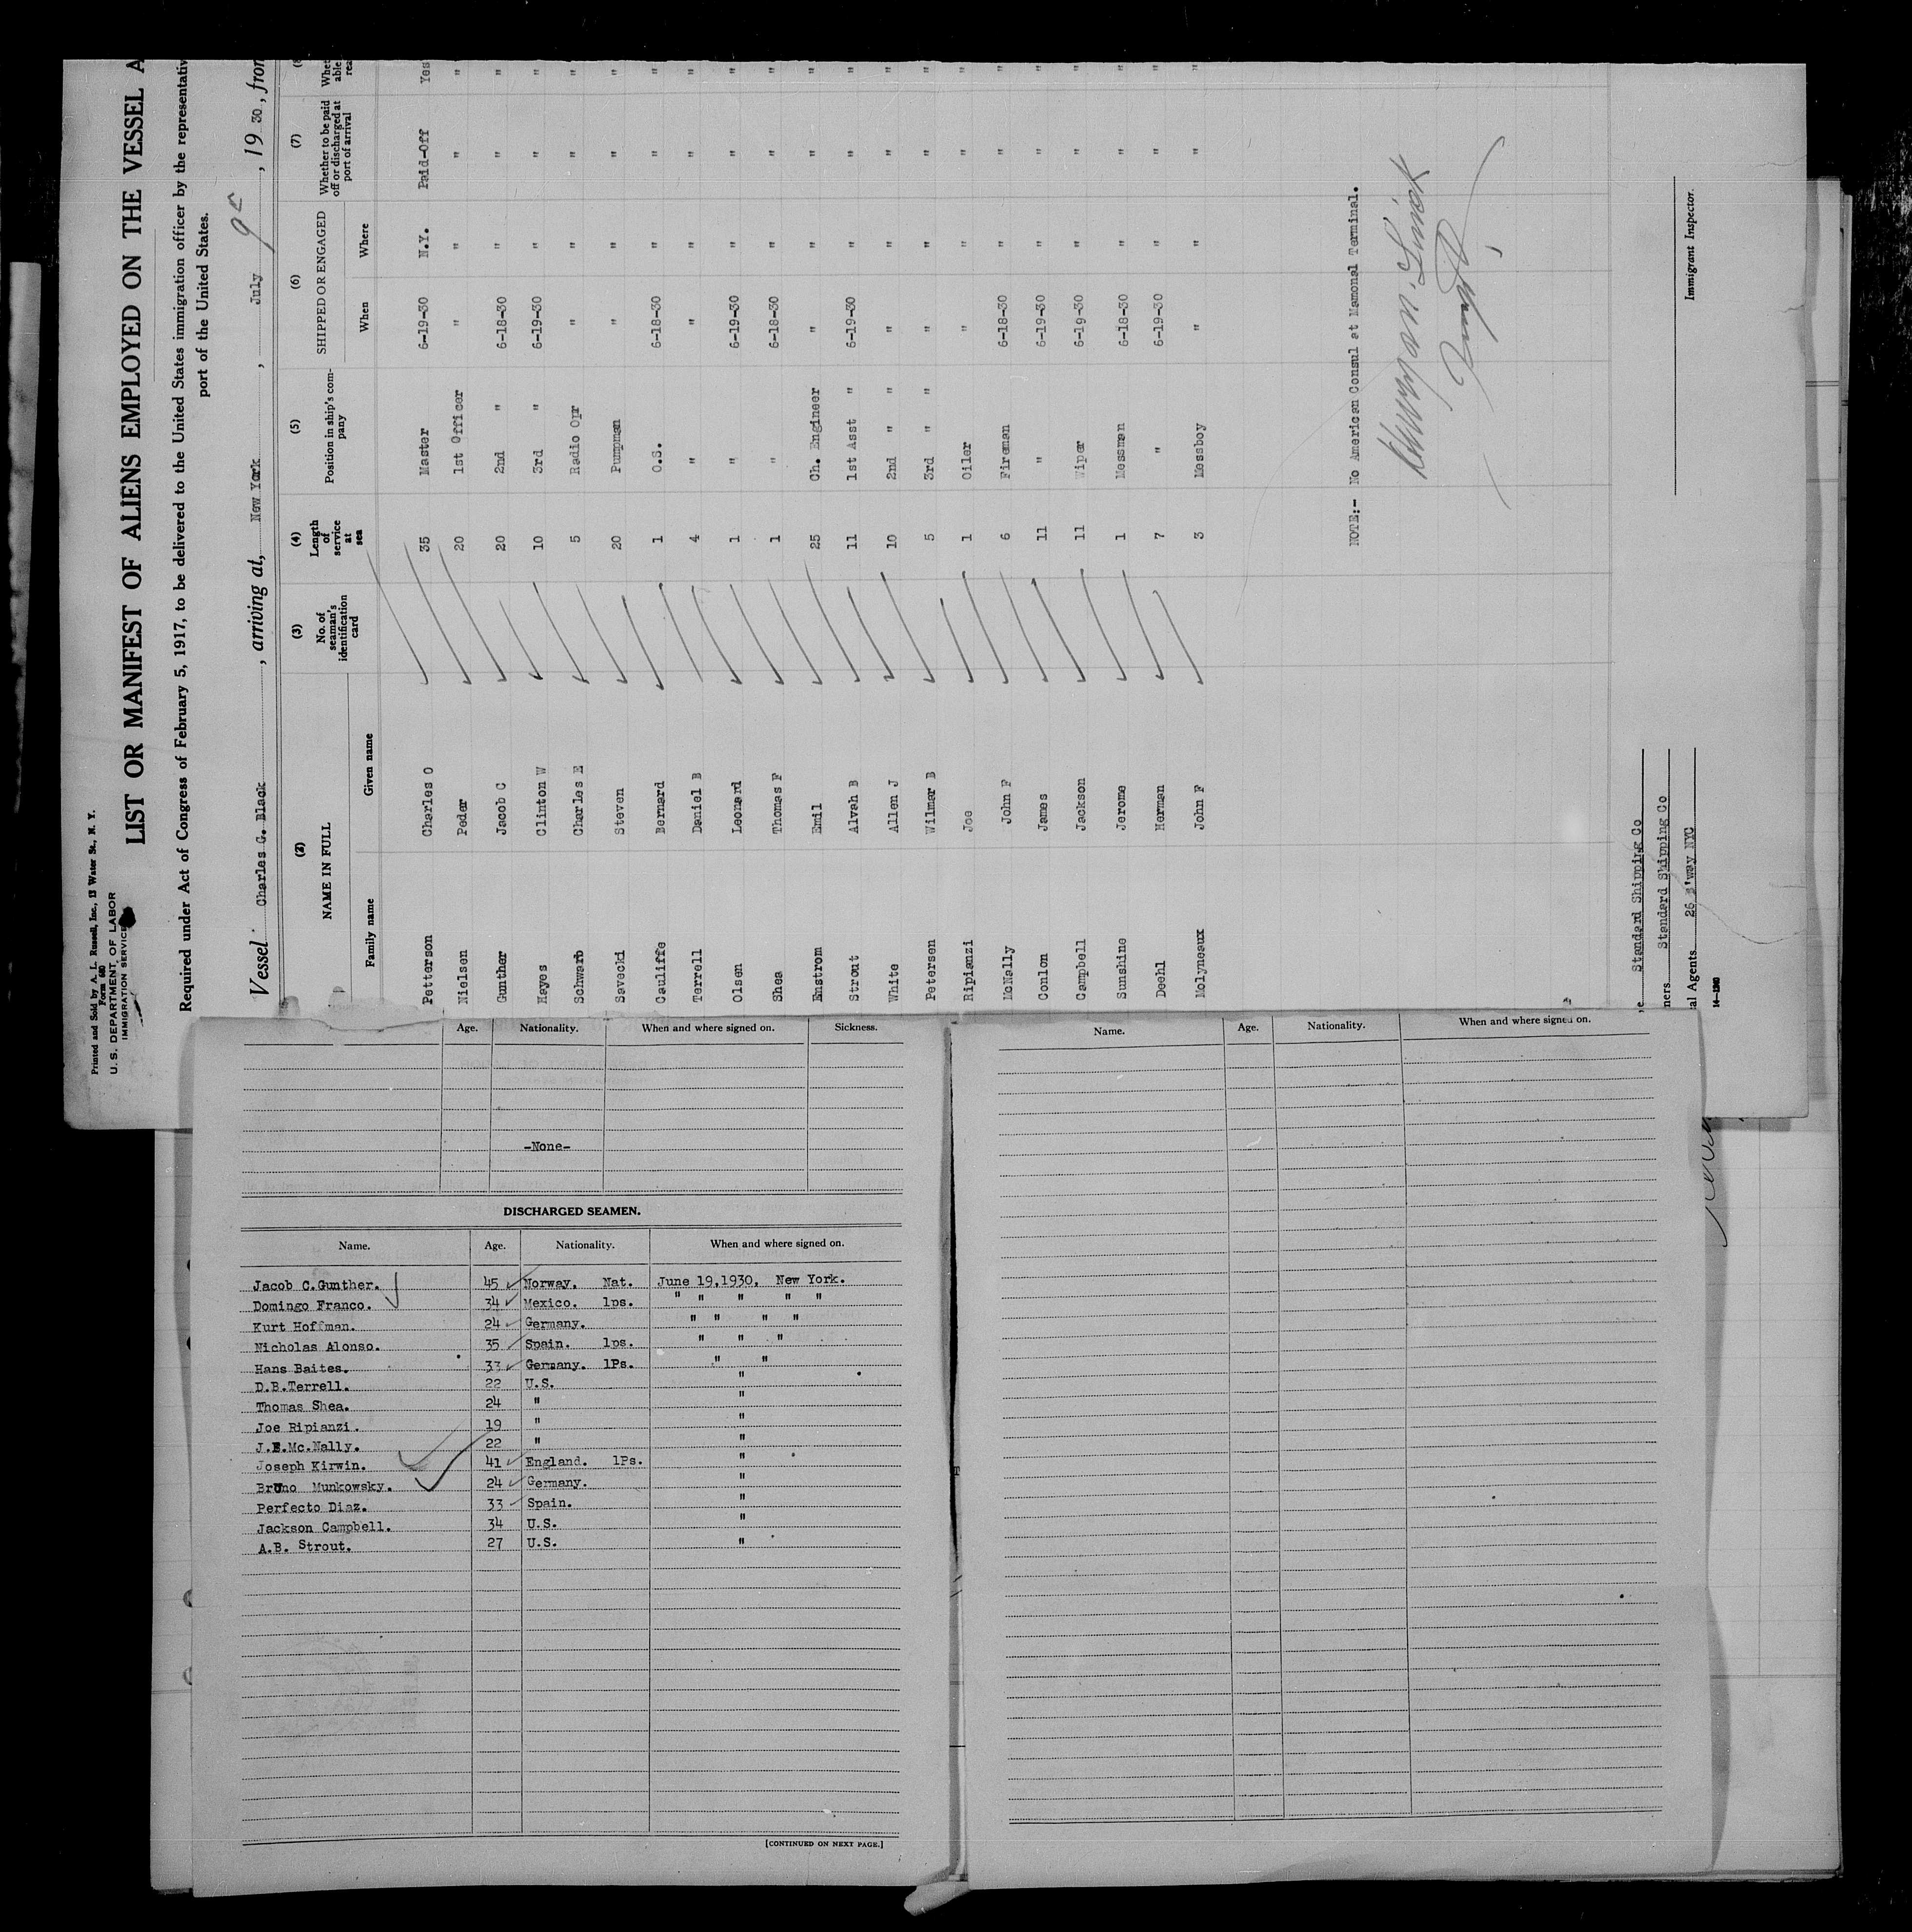 Printed and Sold by A. L. Russell, Inc., 13 Water St., N. Y.
Form 680
U. S. DEPARTMENT OF LABOR
IMMIGRATION SERVICE
LIST OR MANIFEST OF ALIENS EMPLOYED ON THE VESSEL A
Required under Act of Congress of February 5, 1917, to be delivered to the United States immigration officer by the representativ
port of the United States.
Vessel Charles G. Black, arriving at, New York, July 9, 1930, from
(2) (3) (4) (5) (6) (7) (8
NAME IN FULL No. of seaman's identification card Length of service at sea Position in ship's company SHIPPED OR ENGAGED Whether to be paid off or discharged at port of arrival Whet able rea
Family name Given name When Where
Petterson Charles O 35 Master 6-19-30 N.Y. Paid-Off Yes
Nielsen Peder 20 1st Officer " " " "
Gunther Jacob C 20 2nd " 6-18-30 " " "
Hayes Clinton W 10 3rd " 6-19-30 " " "
Schwarb Charles E 5 Radio Opr " " " "
Savecki Steven 20 Pumpman " " " "
Cauliffe Bernard 1 O.S. 6-18-30 " " "
Terrell Daniel B 4 " " " " "
Olsen Leonard 1 " 6-19-30 " " "
Shea Thomas F 1 " 6-18-30 " " "
Enstrom Emil 25 Ch. Engineer " " " "
Strout Alvah B 11 1st Asst " 6-19-30 " " "
White Allen J 10 2nd " " " " " "
Petersen Wilmar B 5 3rd " " " " " "
Ripianzi Joe 1 Oiler " " " "
McNally John F 6 Fireman 6-18-30 " " "
Conlon James 11 " 6-19-30 " " "
Campbell Jackson 11 Wiper 6-19-30 " " "
Sunshine Jerome 1 Messman 6-18-30 " " "
Deehl Herman 7 " 6-19-30 " " "
Molyneaux John F 3 Messboy " " " "
NOTE:- No American Consul at Mamonal Terminal.
e Standard Shipping Co
ners Standard Shipping Co
al Agents 26 B'way NYC
Immigrant Inspector.
Age. Nationality. When and where signed on. Sickness.
-None-
DISCHARGED SEAMEN.
Name. Age. Nationality. When and where signed on.
Jacob C.Gunther. 45 Norway. Nat. June 19,1930, New York.
Domingo Franco. 34 Mexico. 1ps. " " " " "
Kurt Hoffman. 24 Germany. " " " "
Nicholas Alonso. 35 Spain. 1ps. " " "
Hans Baites. 33 Germany. 1Ps. " "
D.B.Terrell. 22 U.S. "
Thomas Shea. 24 " "
Joe Ripianzi. 19 " "
J.F.Mc.Nally. 22 " "
Joseph Kirwin. 41 England. 1Ps. "
Bruno Munkowsky. 24 Germany. "
Perfecto Diaz. 33 Spain. "
Jackson Campbell. 34 U.S. "
A.B. Strout. 27 U.S. "
[CONTINUED ON NEXT PAGE.]
Name. Age. Nationality. When and where signed on.